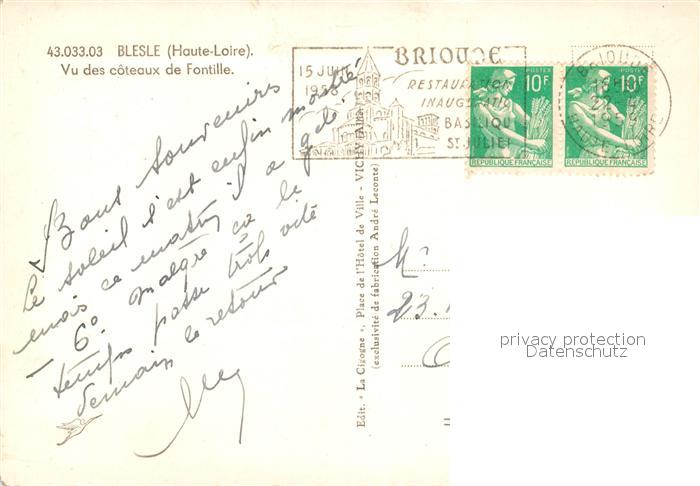 43.033.03 BLESLE (Haute-Loire).
Vu des côteaux de Fontille.
15 JUIN
1958
BRIOUDE
RESTAURATION
INAUGURATIO
BASILIQU
ST JULIEN
POSTES
10F
REPUBLIQUE FRANÇAISE
POSTES
10F
REPUBLIQUE FRANÇAISE
BRIOUDE
HAUTE LOIRE
Bons souvenirs
Le soleil s'est enfin montré
mais ce matin il a gelé.
- 6° Malgré ça le
temps passe très vite
demain le retour
Edit. "La Cigogne", Place de l'Hôtel de Ville - VICHY (Allier)
(exclusivité de fabrication André Leconte)
M.
23.
privacy protection
Datenschutz